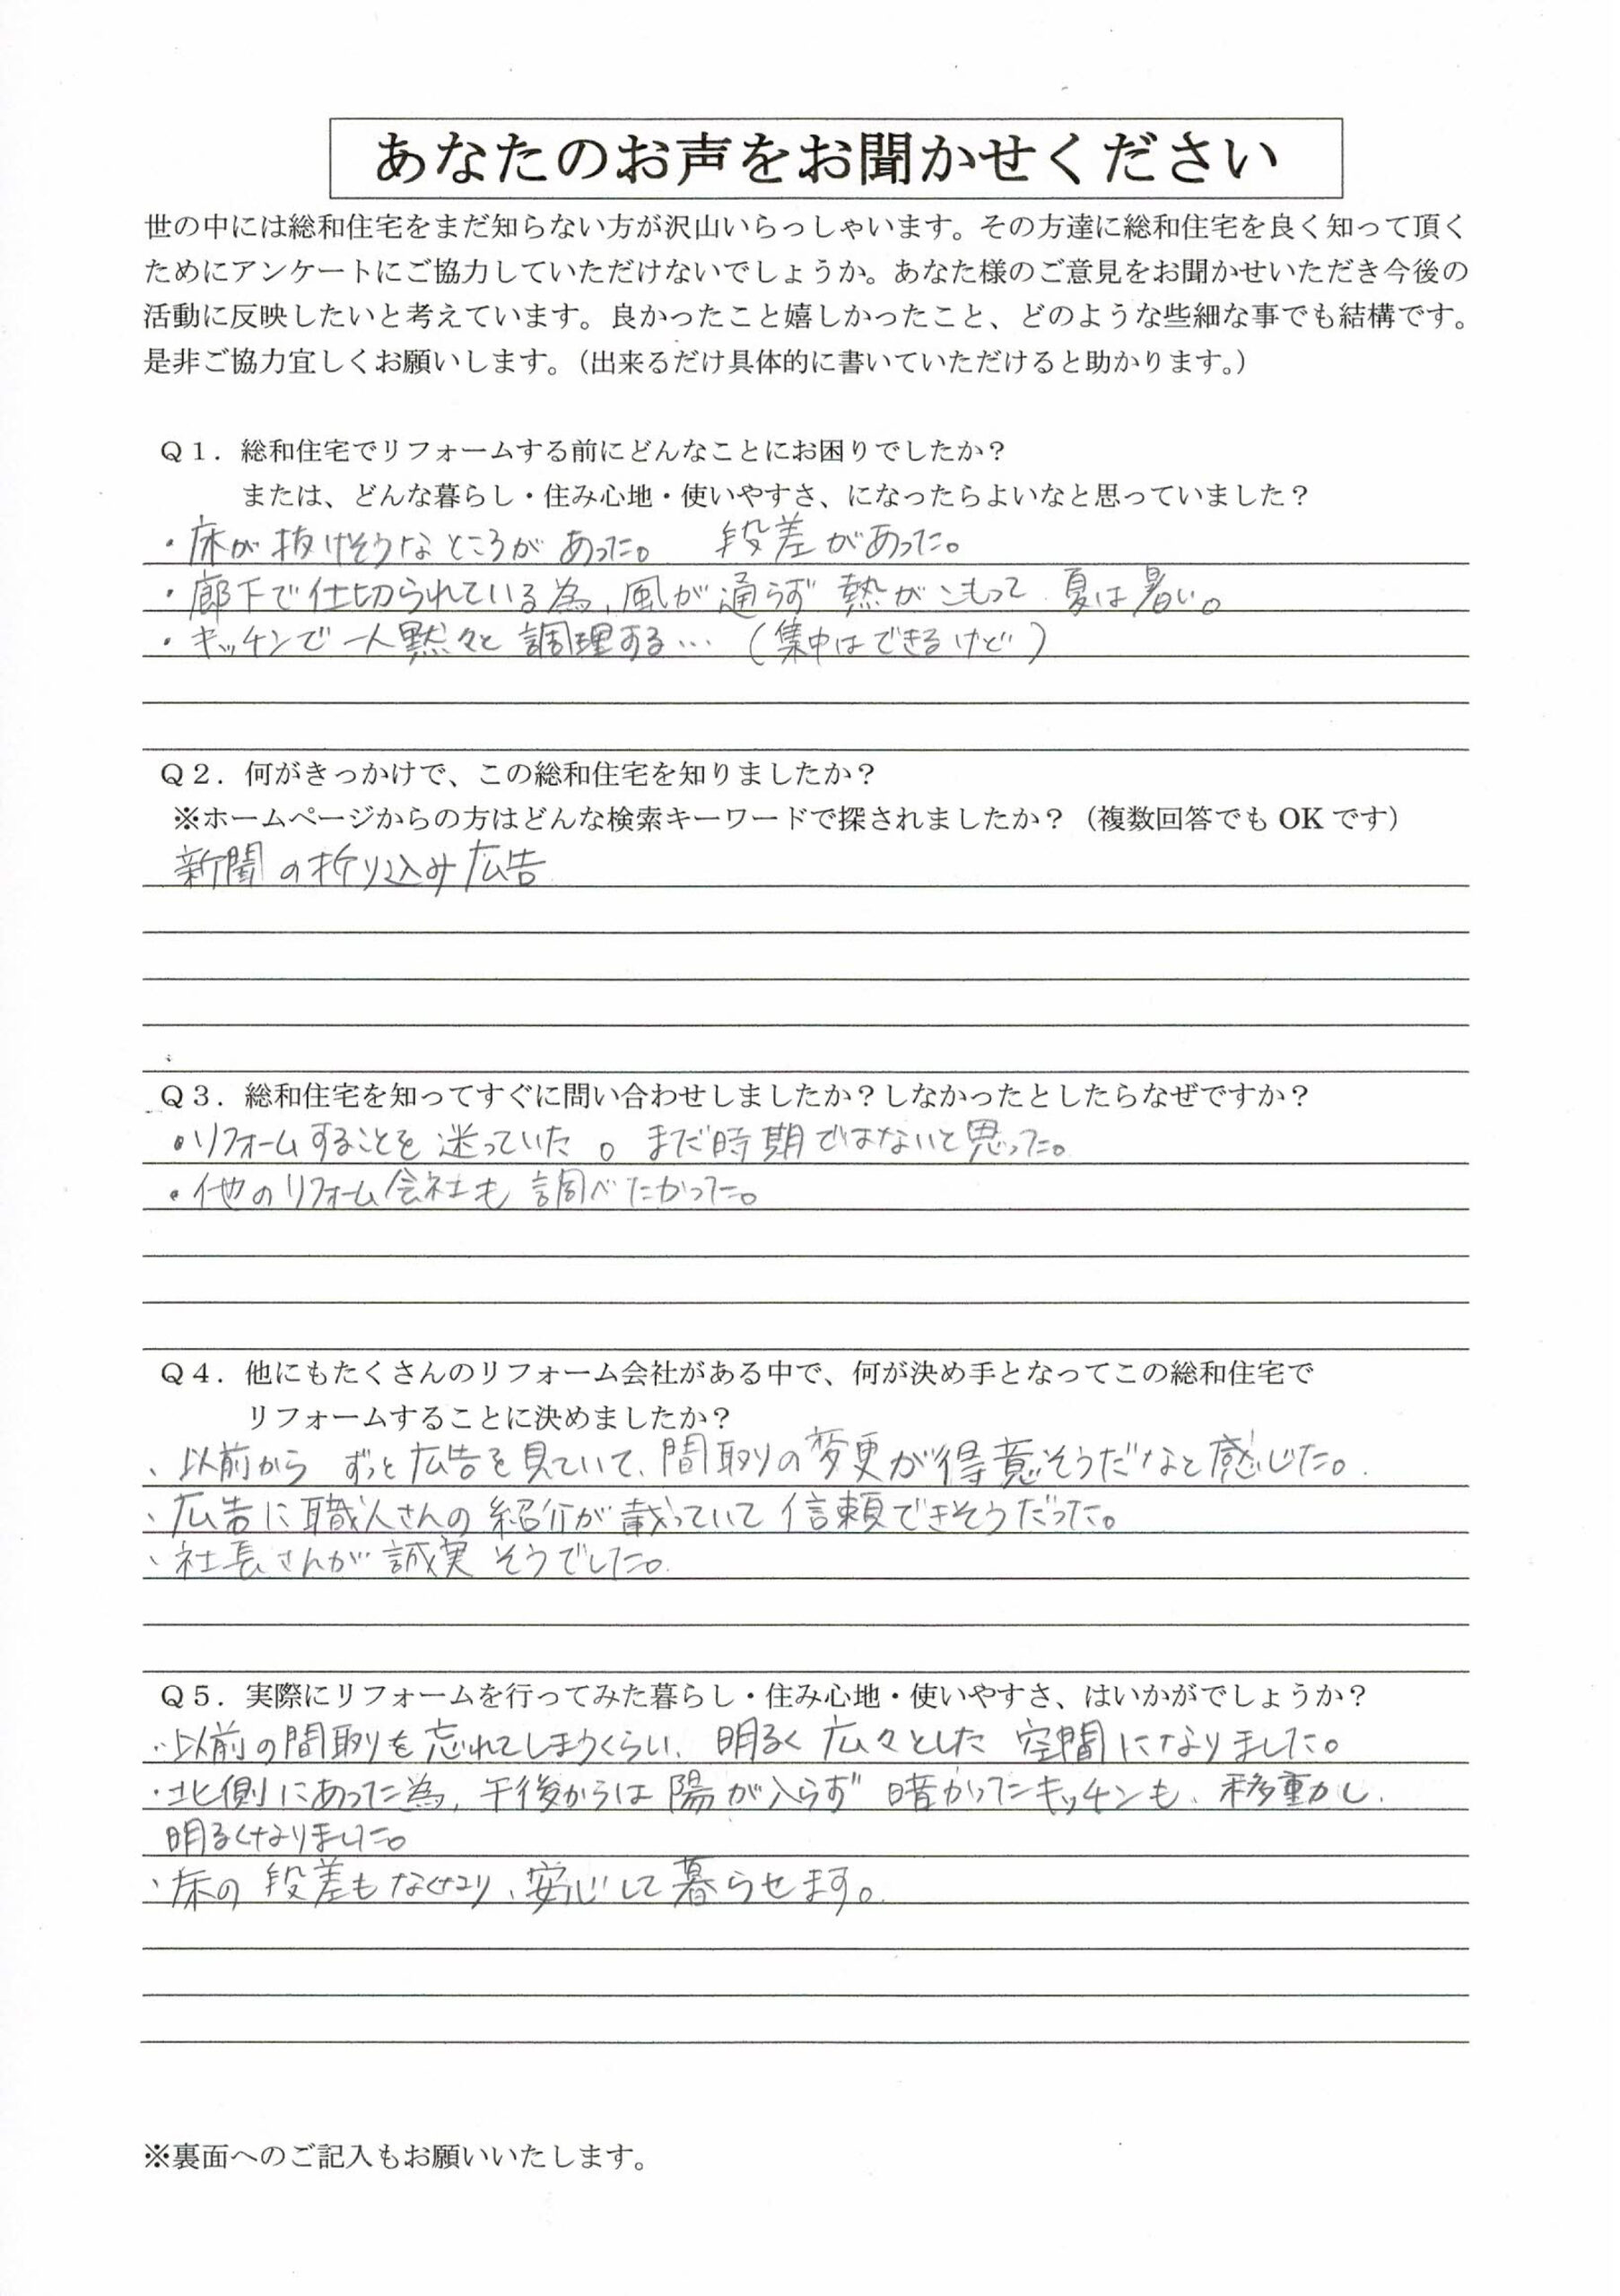 あなたのお声をお聞かせください
世の中には総和住宅をまだ知らない方が沢山いらっしゃいます。その方達に総和住宅を良く知って頂く
ためにアンケートにご協力していただけないでしょうか。あなた様のご意見をお聞かせいただき今後の
活動に反映したいと考えています。良かったこと嬉しかったこと、どのような些細な事でも結構です。
是非ご協力宜しくお願いします。（出来るだけ具体的に書いていただけると助かります。）
Ｑ１．総和住宅でリフォームする前にどんなことにお困りでしたか？
または、どんな暮らし・住み心地・使いやすさ、になったらよいなと思っていました？
・床が抜けそうなところがあった。 段差があった。
・廊下で仕切られている為、風が通らず熱がこもって夏は暑い。
・キッチンで一人黙々と調理する…（集中はできるけど）
Ｑ２．何がきっかけで、この総和住宅を知りましたか？
※ホームページからの方はどんな検索キーワードで探されましたか？（複数回答でも OK です）
新聞の折り込み広告
Ｑ３．総和住宅を知ってすぐに問い合わせしましたか？しなかったとしたらなぜですか？
・リフォームすることを迷っていた。まだ時期ではないと思った。
・他のリフォーム会社も調べたかった。
Ｑ４．他にもたくさんのリフォーム会社がある中で、何が決め手となってこの総和住宅で
リフォームすることに決めましたか？
、以前からずっと広告を見ていて、間取りの変更が得意そうだなと感じた。
、広告に職人さんの紹介が載っていて信頼できそうだった。
、社長さんが誠実そうでした。
Ｑ５．実際にリフォームを行ってみた暮らし・住み心地・使いやすさ、はいかがでしょうか？
・以前の間取りを忘れてしまうくらい、明るく広々とした空間になりました。
・北側にあった為、午後からは陽が入らず暗かったキッチンも、移動し、
明るくなりました。
、床の段差もなくなり、安心して暮らせます。
※裏面へのご記入もお願いいたします。